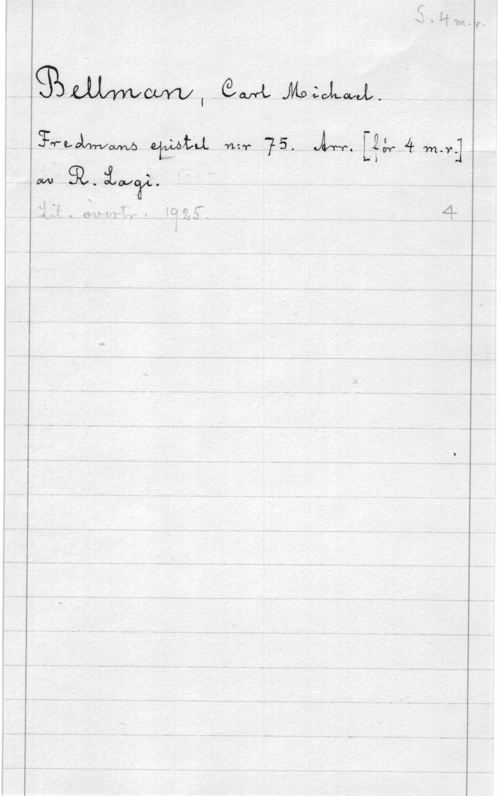 S. 4 m.r.
Bellman, Carl Michael.
Fredmans epistel n:r 75. Arr. [för 4 m.r.]
av R. Lagi.
Lit. övertr. 1925. 4